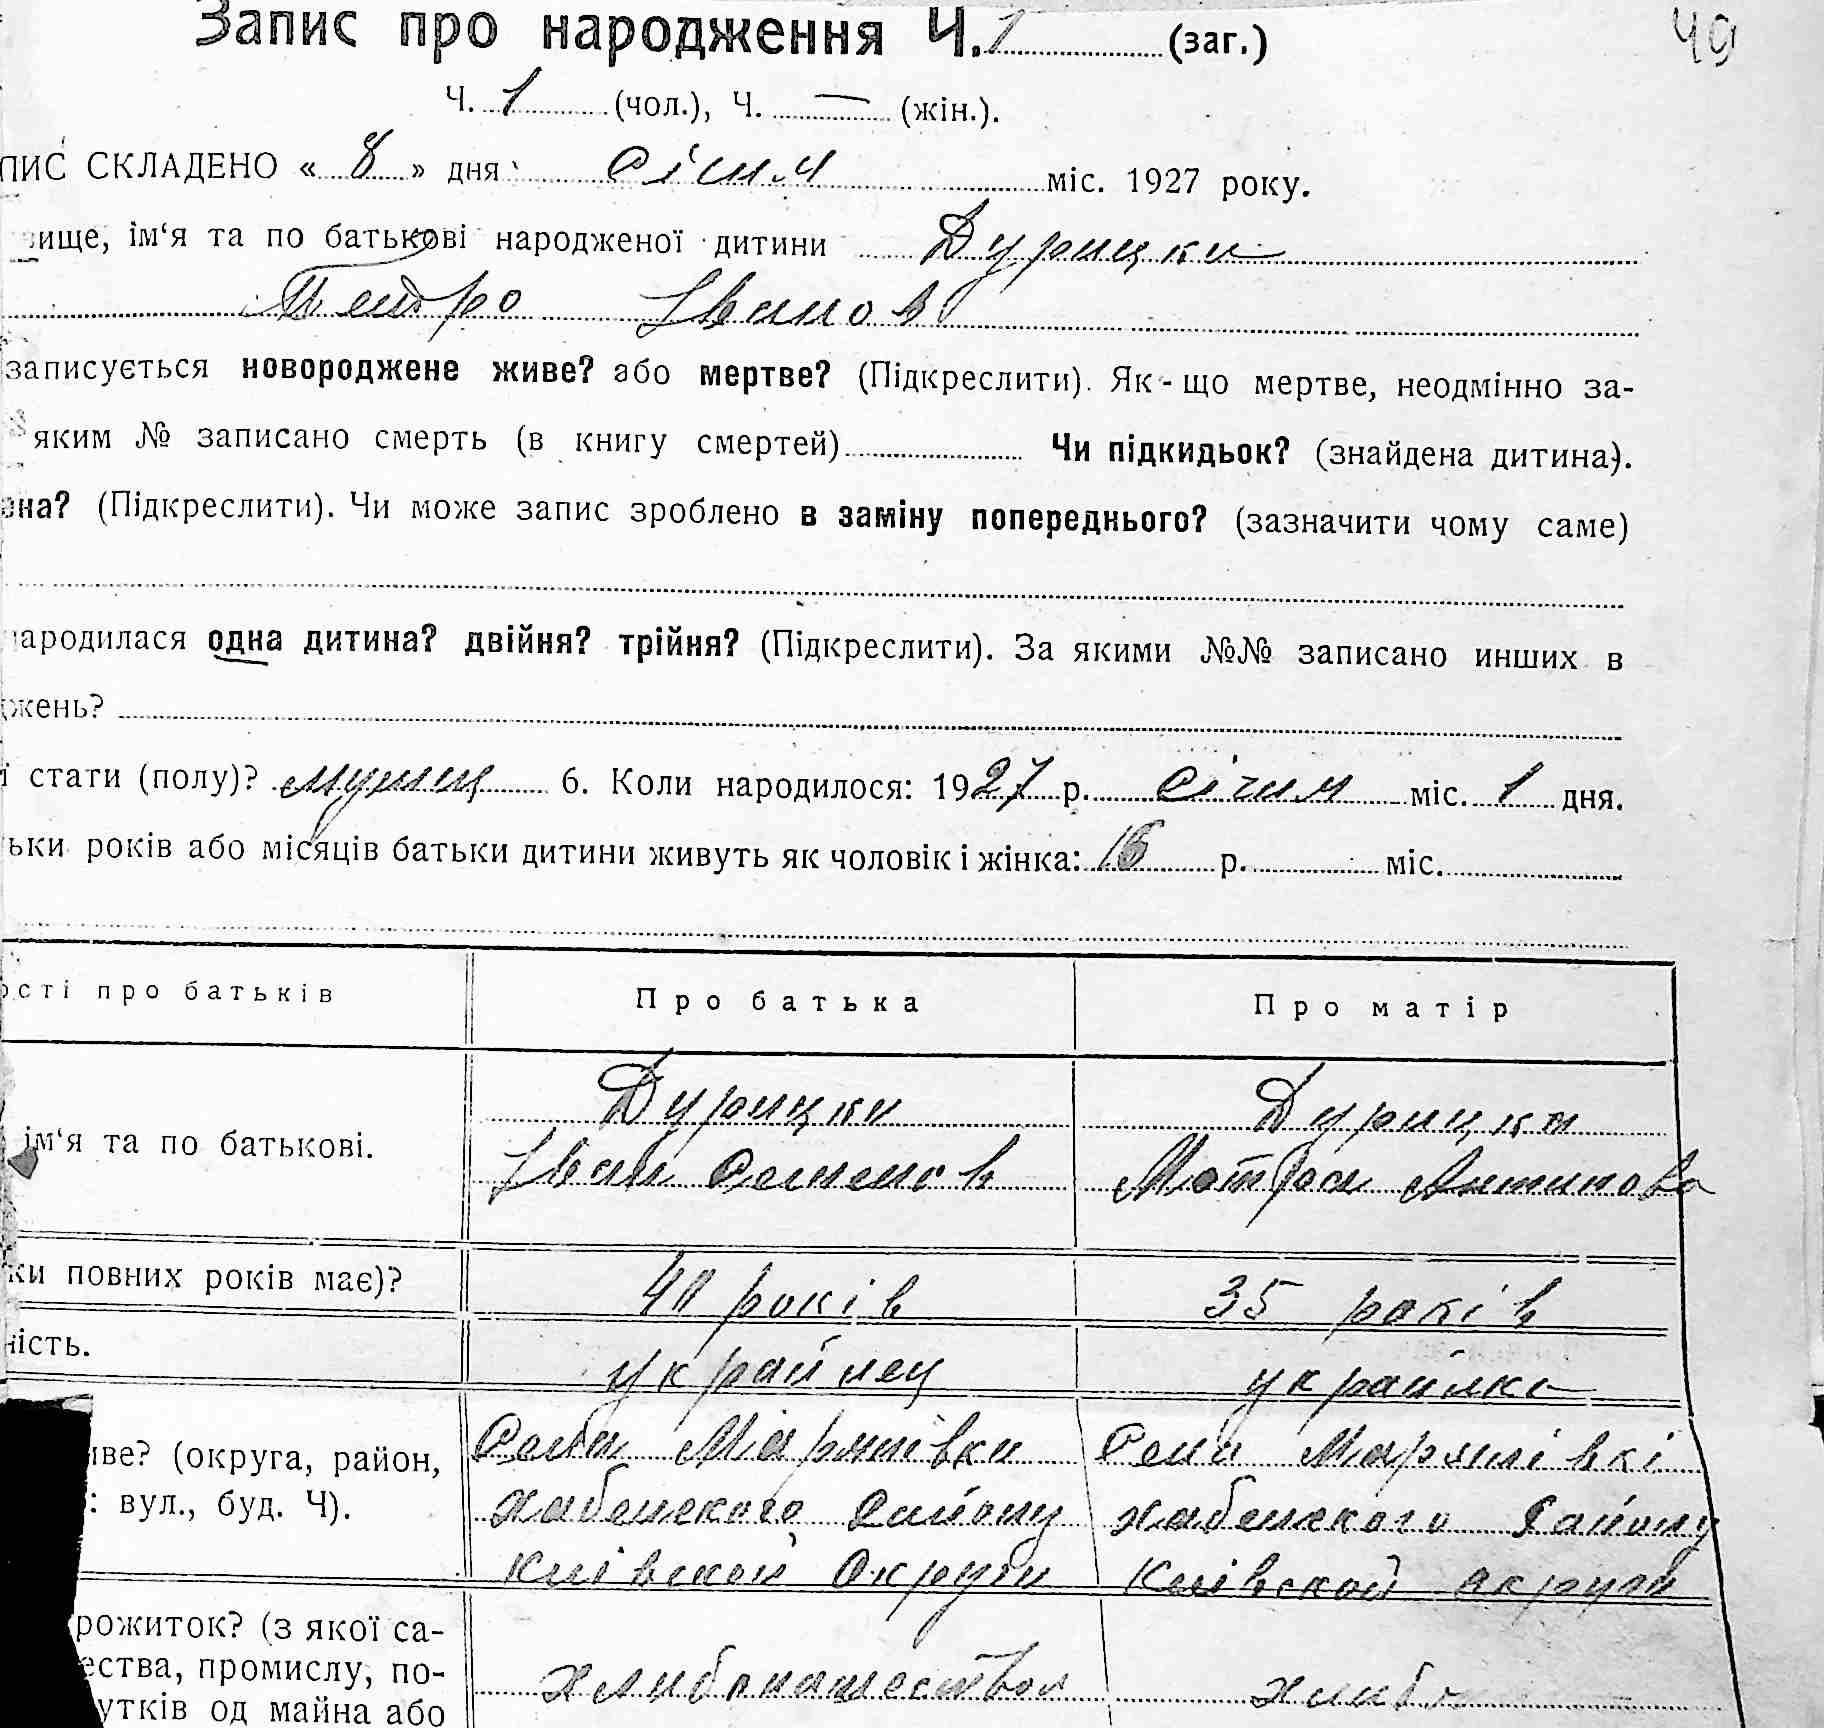 Запис про народження Ч. 1 (заг.)
49
Ч. 1 (чол.), Ч. — (жін.).
ПИС СКЛАДЕНО « 8 » дня січня міс. 1927 року.
вище, ім‘я та по батькові народженої дитини Дурицки
Петро Іванов
записується новороджене живе? або мертве? (Підкреслити). Як-що мертве, неодмінно за-
яким № записано смерть (в книгу смертей) Чи підкидьок? (знайдена дитина).
ена? (Підкреслити). Чи може запис зроблено в заміну попереднього? (зазначити чому саме)
народилася одна дитина? двійня? трійня? (Підкреслити). За якими №№ записано инших в
жень?
ї стати (полу)? мущиц 6. Коли народилося: 1927 р. січня міс. 1 дня.
ьки років або місяців батьки дитини живуть як чоловік і жінка: 16 р. міс.
ості про батьків Про батька Про матір
Дурицки Дурицки
ім‘я та по батькові. Іван Семенов Мотря Антипова
ки повних років має)? 40 років 35 років
ність. украйнец украйнка
иве? (округа, район, Села Мар‘янівки Села Марянівкі
: вул., буд. Ч). хабенского Району хабенского Району
Київской Округи Київской округи
рожиток? (з якої са-
ества, промислу, по- хлибопашество хлибо
утків од майна або